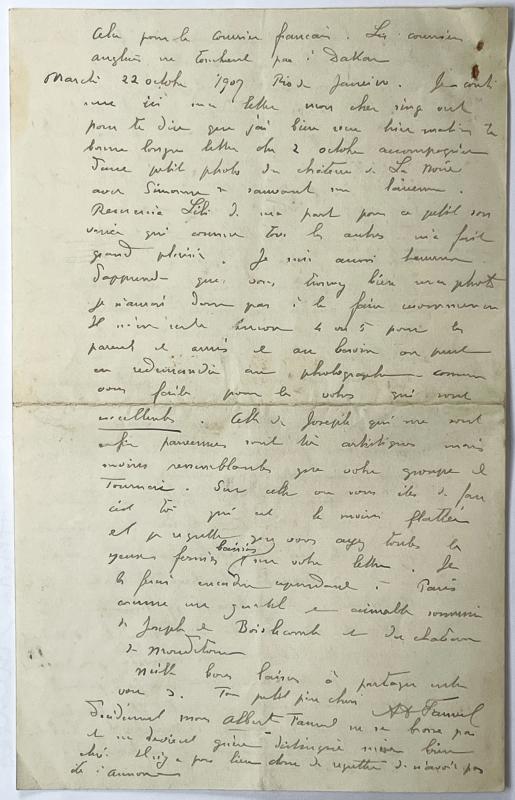 Cela pour le courrier français. Les courriers
anglais ne touchent pas à Dakar
Mardi 22 octobre 1907 Rio de Janeiro. Je conti
nue ici ma lettre mon cher
pour te dire que j'ai bien reçu hier matin ta
bonne longue lettre du 2 octobre accompagnée
d'une petite photo du château de La
avec Simonne
Remercie Lili de ma part pour ce petit sou
venir qui comme tous les autres m'a fait
grand plaisir. Je suis aussi heureux
d'apprendre que vous trouvez bien ma photo
je n'aurai donc pas à la faire recommencer
Il m'en reste encore 4 ou 5 pour les
parents et amis et au besoin on peut
en redemander au photographe comme
vous faites pour les votres qui sont
excellentes. Celles de Joseph qui me sont
enfin parvenues sont très artistiques mais
moins ressemblantes que votre groupe de
Tournai. Sur celle où vous êtes de face
c'est toi qui est le moins flattée
et je regrette que vous ayez toutes les
yeux fermés baissés sur votre lettre. Je
les ferai encadrer cependant à Paris
comme une gentil et aimable souvenir
de Joseph de et du château
de
Mille bons baisers à partager entre
vous 3. Ton petit père chéri
mon Albert ne se borne pas
et ne devient guère distingué mon bien
chéri. Il n'y a pas lieu donc de regretter de n'avoir pas